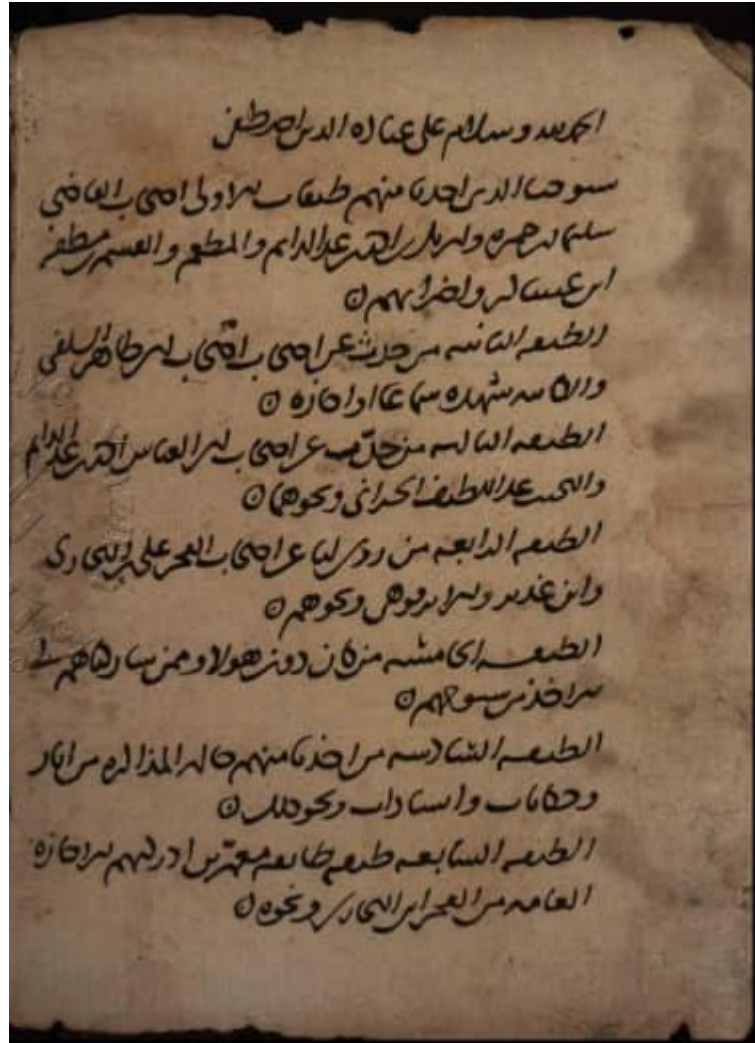 الحمد لله وسلام على عباده الذين اصطفى
شيوخنا الذين اخذنا منهم طبقات الاولى اصحاب القاضي
سليمان بن حمزة وابي بكر بن احمد بن عبد الدايم والمطعم والقسم بن مظفر
ابن عساكر واضرابهم
الطبقه الثانيه من حدث عن اصحاب اصحاب ابي طاهر السلفي
والكاتبه شهده سماعا او اجازه
الطبقه الثالثه من حدّث عن اصحاب ابي العباس احمد بن عبد الدايم
والنجيب عبد اللطيف الحراني ونحوهما
الطبقه الرابعه من روى لنا عن اصحاب الفخر علي بن البخاري
وابن غدير والابرقوهي ونحوهم
الطبقه الخامسه من كان دون هولاء وممن شاركناهم في
الاخذ من شيوخهم
الطبقه السادسه من اخذنا منهم حاله المذاكره من اثار
وحكايات وانشادات ونحو ذلك
الطبقه السابعه طبقه طائفه معمّرين ادركتهم الاجازه
العامه من الفخر ابن البخاري ونحوه